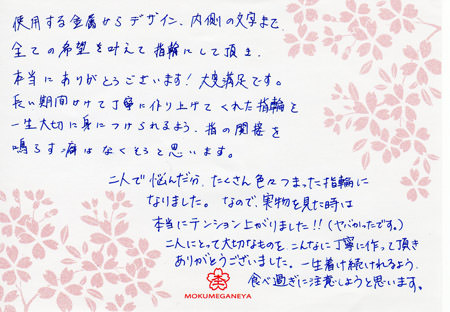 使用する金属からデザイン、内側の文字まで、
全ての希望を叶えて指輪にして頂き、
本当にありがとうございます！大満足です。
長い期間かけて丁寧に作り上げてくれた指輪を
一生大切に身につけられるよう、指の関接を
鳴らす癖はなくそうと思います。
二人で悩んだ分、たくさん色々つまった指輪に
なりました。なので、実物を見た時は
本当にテンション上がりました!!（ヤバかったです。）
二人にとって大切なものを、こんなに丁寧に作って頂き
ありがとうございました。一生着け続けれるよう、
食べ過ぎに注意しようと思います。
MOKUMEGANEYA